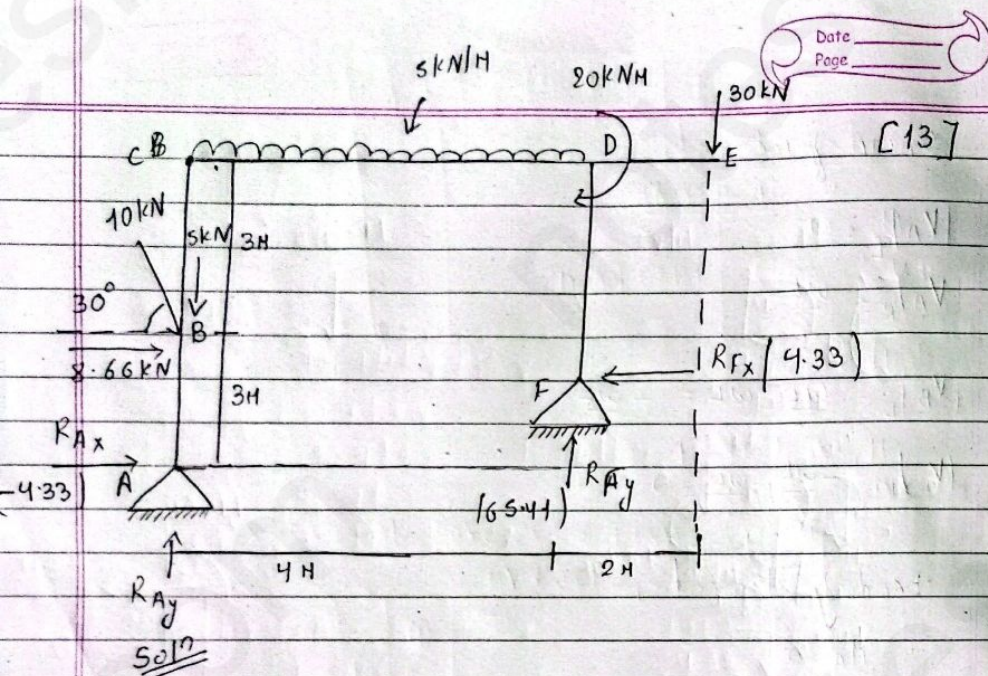 Date
Page
5kN/M
20kNM
30kN
[13]
C
D
E
10kN
5kN
3M
30°
B
8.66kN
RFx (4.33)
F
3M
RAx
-4.33)
A
(65.41)
4M
2M
RAy
Solⁿ